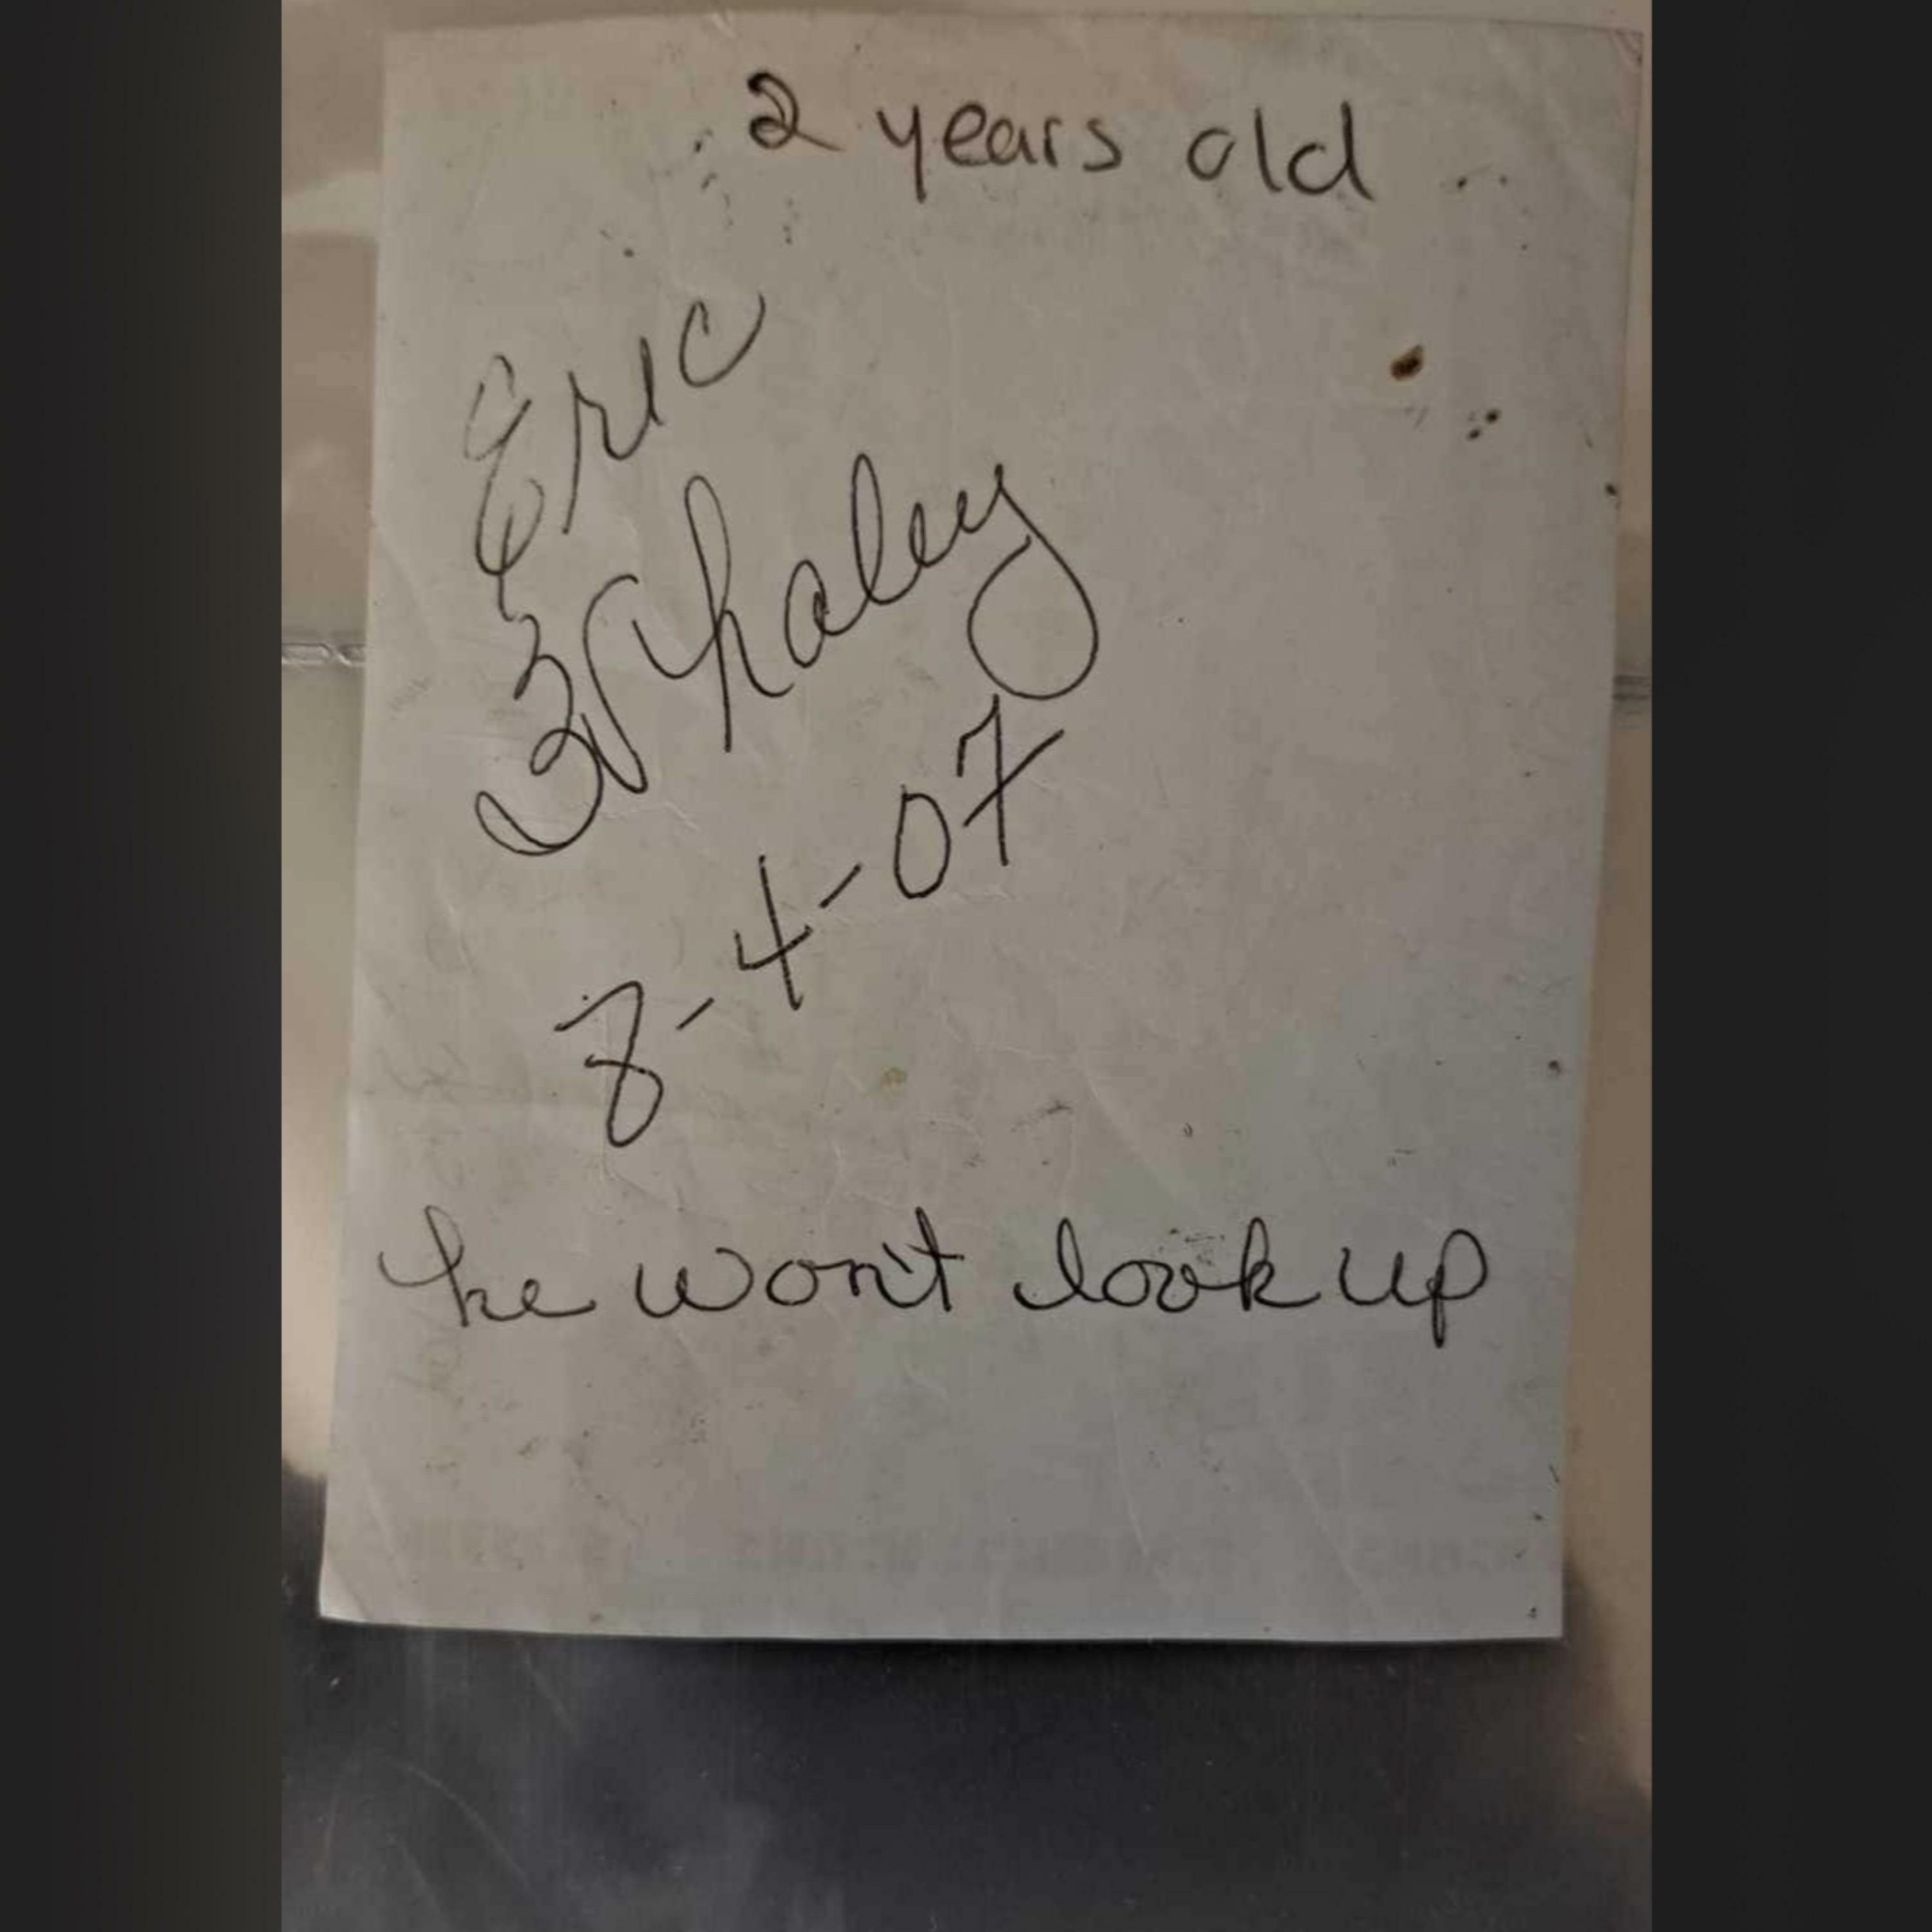 2 years old
Eric
& haley
8-4-07
he won't look up